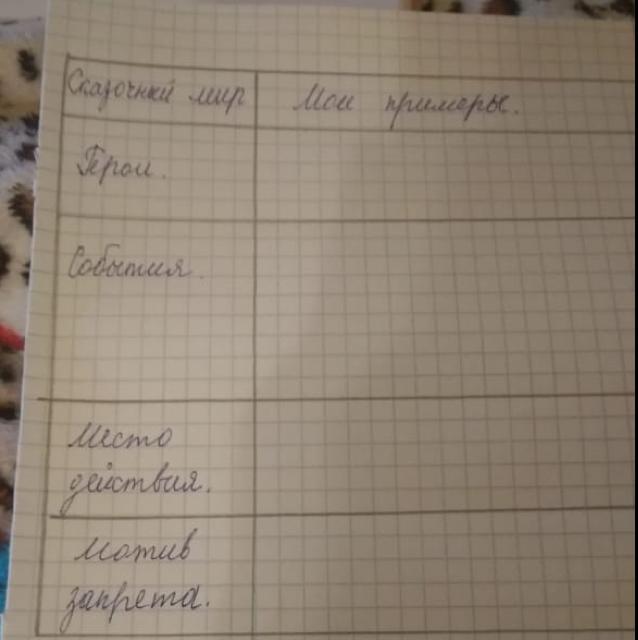 Сказочный мир
Мои примеры.
Герои.
События.
Место
действия.
Мотив
запрета.